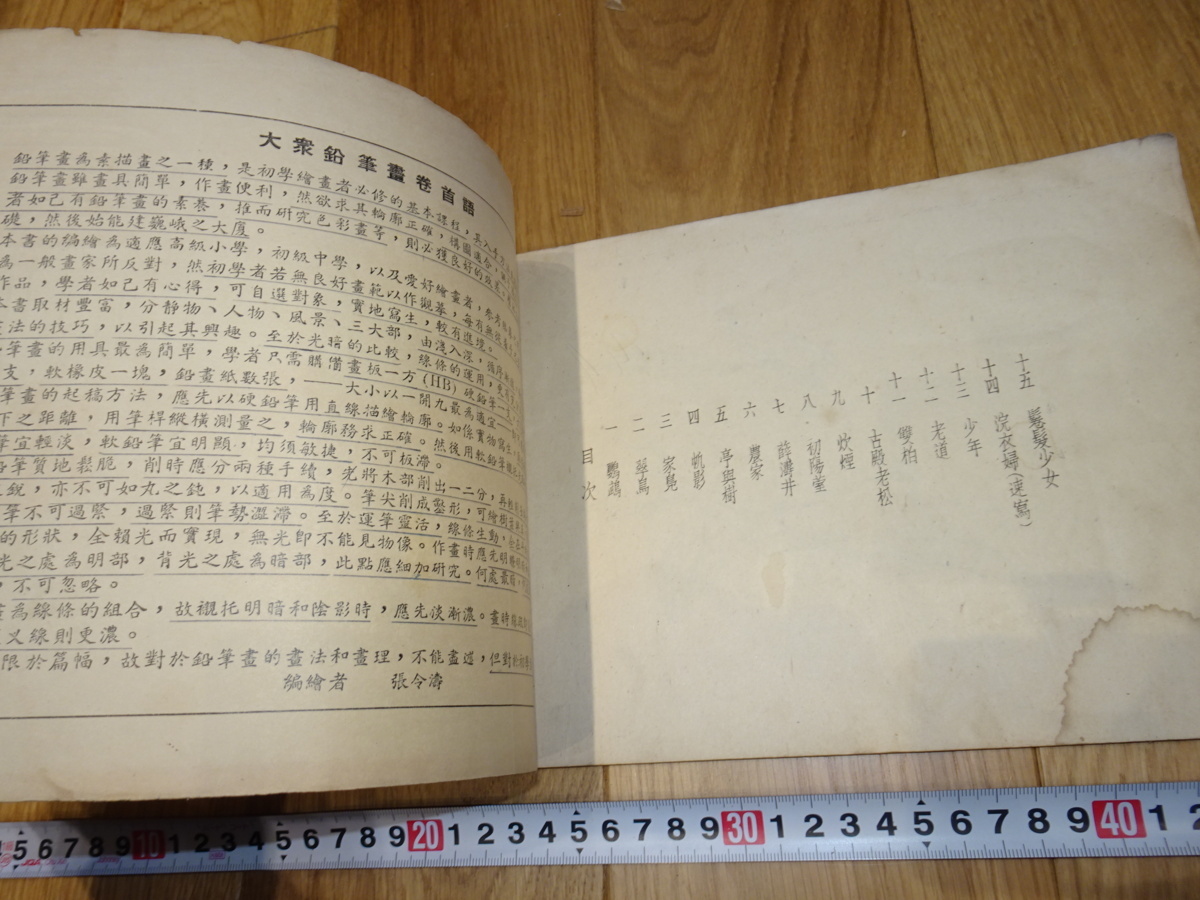 大眾鉛筆畫卷首語
鉛筆畫為素描畫之一種，是初學繪畫者必修的基本課程，其入手
鉛筆畫雖畫具簡單，作畫便利，然欲求其輪廓正確，構圖適合，
者如已有鉛筆畫的素養，推而研究色彩畫等，則必獲良好的效果
礎，然後始能建巍峨之大廈。
本書的編繪為適應高級小學，初級中學，以及愛好繪畫者，參考
為一般畫家所反對，然初學者若無良好畫範以作觀摹，每有無
作品，學者如已有心得，可自選對象，實地寫生，較有進境。
本書取材豐富，分靜物、人物、風景、三大部，由淺入深，循序
法的技巧，以引起其興趣。至於光暗的比較，線條的運用，
筆畫的用具最為簡單，學者只需購備畫板一方(HB)硬鉛筆一
支，軟橡皮一塊，鉛畫紙數張，——大小以一開九最為適宜
筆畫的起稿方法，應先以硬鉛筆用直線描繪輪廓。如係實物寫生
下之距離，用筆桿縱橫測量之，輪廓務求正確。然後用軟鉛筆
筆宜輕淡，軟鉛筆宜明顯，均須敏捷，不可板滯。
鉛筆質地鬆脆，削時應分兩種手續，先將木部削出一二分，再
銳，亦不可如丸之鈍，以適用為度。筆尖削成鏨形，可繪樹
筆不可過緊，過緊則筆勢澀滯。至於運筆靈活，線條生動，
的形狀，全賴光而實現，無光即不能見物像。作畫時應先明
光之處為明部，背光之處為暗部，此點應細加研究。何處最
，不可忽略。
畫為線條的組合，故襯托明暗和陰影時，應先淡漸濃。畫時
叉線則更濃。
限於篇幅，故對於鉛筆畫的畫法和畫理，不能盡述，但對
編繪者　張令濤
十五　鬈髮少女
十四　浣衣婦(速寫)
十三　少年
十二　老道
十一　雙柏
十　古殿老松
九　炊煙
八　初陽臺
七　薛濤井
六　農家
五　亭與樹
四　帆影
三　家凫
二　翠鳥
一　鸚鵡
目次
5 6 7 8 9 10 1 2 3 4 5 6 7 8 9 20 1 2 3 4 5 6 7 8 9 30 1 2 3 4 5 6 7 8 9 40 1 2